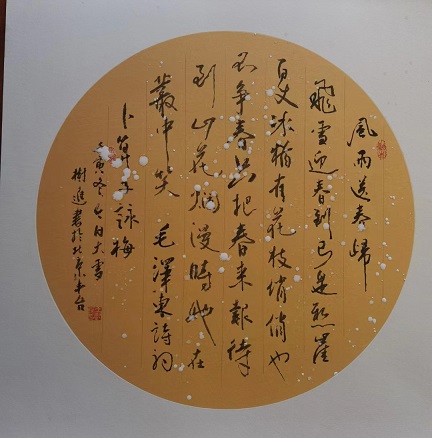 風雨送春歸
飛雪迎春到已是懸崖
百丈冰猶有花枝俏俏也
不爭春只把春來報待
到山花爛漫時她在
叢中笑 毛澤東詩詞
卜算子詠梅
壬寅冬今日大雪
樹進書於北京丰台